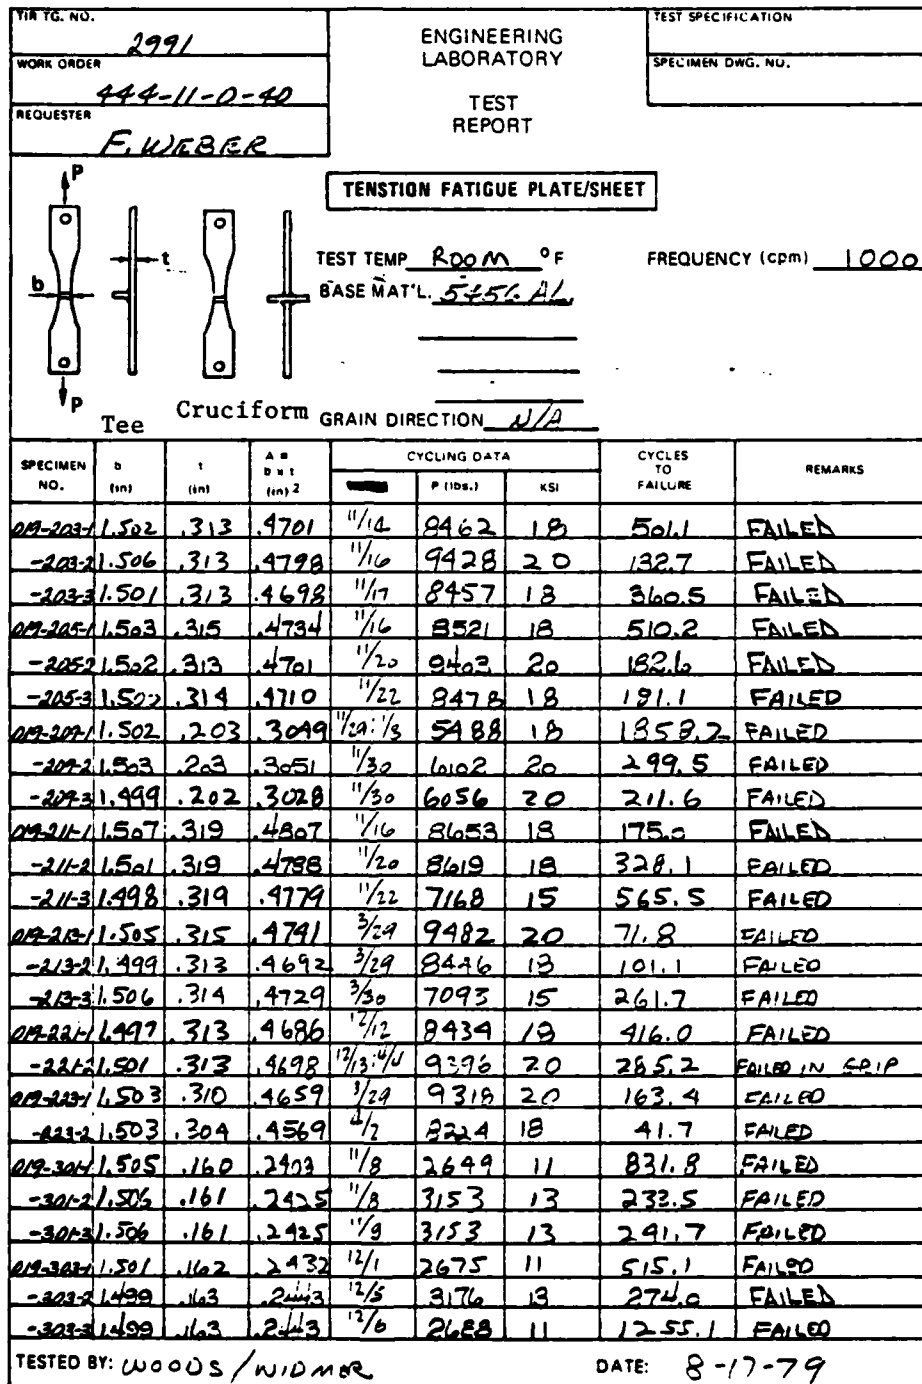 TIR TG. NO.
2991
WORK ORDER
444-11-0-40
REQUESTER
F. WEBER
ENGINEERING
LABORATORY
TEST
REPORT
TEST SPECIFICATION
SPECIMEN DWG. NO.
TENSTION FATIGUE PLATE/SHEET
P
t
b
P
Tee
Cruciform
TEST TEMP ROOM °F
FREQUENCY (cpm) 1000
BASE MAT'L. 5456 AL
GRAIN DIRECTION N/A
SPECIMEN NO. b (in) t (in) A = b x t (in)2 CYCLING DATA P (lbs.) KSI CYCLES TO FAILURE REMARKS
019-203-1 1.502 .313 .4701 11/14 8462 18 501.1 FAILED
-203-2 1.506 .313 .4798 11/16 9428 20 132.7 FAILED
-203-3 1.501 .313 .4698 11/17 8457 18 360.5 FAILED
019-205-1 1.503 .315 .4734 11/16 8521 18 510.2 FAILED
-205-2 1.502 .313 .4701 11/20 9403 20 182.6 FAILED
-205-3 1.502 .314 .4710 11/22 8478 18 191.1 FAILED
019-209-1 1.502 .203 .3049 5488 18 1858.2 FAILED
-209-2 1.503 .203 .3051 11/30 6102 20 299.5 FAILED
-209-3 1.499 .202 .3028 11/30 6056 20 211.6 FAILED
019-211-1 1.507 .319 .4807 11/16 8653 18 175.0 FAILED
-211-2 1.501 .319 .4788 11/20 8619 18 328.1 FAILED
-211-3 1.498 .319 .4779 11/22 7168 15 565.5 FAILED
019-213-1 1.505 .315 .4741 3/29 9482 20 71.8 FAILED
-213-2 1.499 .313 .4692 3/29 8446 18 101.1 FAILED
-213-3 1.506 .314 .4729 3/30 7093 15 261.7 FAILED
019-221-1 1.497 .313 .4686 12/12 8434 18 416.0 FAILED
-221-2 1.501 .313 .4698 12/13 9396 20 285.2 FAILED IN GRIP
019-223-1 1.503 .310 .4659 3/29 9318 20 163.4 FAILED
-223-2 1.503 .304 .4569 4/2 8224 18 41.7 FAILED
019-301-1 1.505 .160 .2403 11/8 2649 11 831.8 FAILED
-301-2 1.506 .161 .2425 11/8 3153 13 233.5 FAILED
-301-3 1.506 .161 .2425 11/9 3153 13 241.7 FAILED
019-303-1 1.501 .162 .2432 12/1 2675 11 515.1 FAILED
-303-2 1.499 .163 .2443 12/5 3176 13 274.0 FAILED
-303-3 1.499 .163 .2443 12/6 2688 11 1255.1 FAILED
TESTED BY: WOODS / WIDMER
DATE: 8-17-79